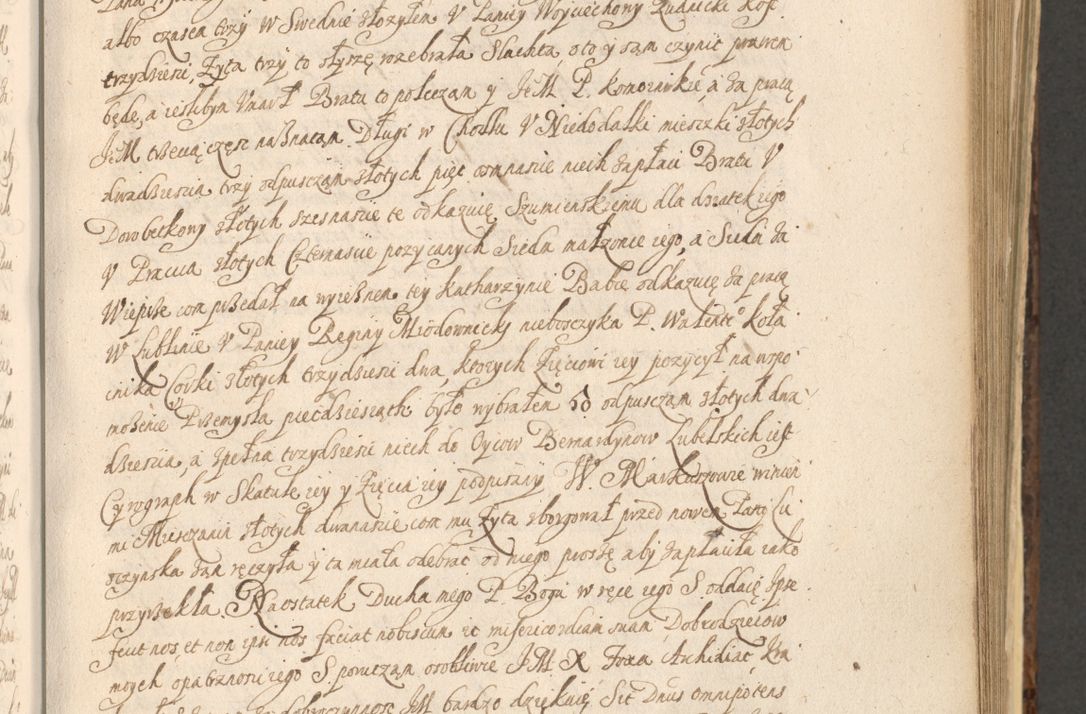 albo czasem trzy w Swednie złozyłem V Paniey Woyciechony Rudnicki
trzydziesci, Zyta trzy to słyszę rozebrała Slachta, oto y sam czynic prawem
będę, a ieslibym vmarł Bratu to polecam y JeM P. komornikie, a za pracą
JeM trzecią częsc naznaczam Długi w Chodlu V Niedodalki mieszki złotych
dwadziescia trzy odpusczam złotych pięc comnasnie niech zapłaci Bratu V
Dorobetkony złotych szesnascie te odkazuię Szumienskiemu dla dziatek iego
V Pracua złotych Czternascie pozycanych Siedm małzonce iego, a Siedm za
Wieprze com przedał na wyrębnem tey Katharzynie Babie odkazuię za pracą
W Lublinie V Paniey Reginy Miodownicki nieboszczyka P. Walente° Koła
cnika Corki złotych trzydziesci dwa, ktorych Zięciowi iey pozycył na wspo
mozenie Przemysła piecdziesiąth było wybrałem 50 odpusczam złotych dwa
dziescia, a zpełna trzydziesci niech do Oycow Bernardynow Lubelskich iest
Cyrograph w Skatule iey y Zięcia iey podpisany W. Markuszowie winien
mi Miesczanin złotych dwanascie com mu Zyta zborgował przed nowem Pani Lu
czynska zan ręczyła y ta miała odebrac od niego proszę aby zapłaciła iako
przyrzekła. Naostatek Ducha mego P. Bogu w ręce iego S. oddaię Ipse
fecit nos, et non ipsi nos faciat nobiscum et misericordiam suam, Dobrodzieiow
moych opatrznosci iego S. poruczam osobliwie JM X. Foxa Archidiac Kra
dobroczynnosc JM bardzo dziękuię Sit Dnus omnipotens